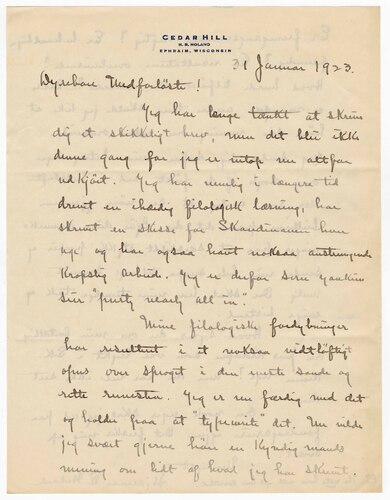 CEDAR HILL
H. R. HOLAND
EPHRAIM, WISCONSIN
31 Januar 1923.
Dyrebare Medforløste!
Jeg har længe tænkt at skrive
dig et skikkeligt brev, men det blir ikke
denne gang for jeg er nu altfor
udkjørt. Jeg har nemlig i længere tid
drevet en ihærdig filologisk læsning, har
skrevet en skisse for Skandinaven
og har ogsaa havt noksaa anstrengende
Kropslig arbeide. Jeg er derfor som yankien
sier "purty nearly all in".
Mine filologiske fordybninger
har resulteret i et noksaa vidtløftigt
opus over sproget i den sande og
rette runesten. Jeg er nu færdig med det
og holder paa at "typewrite" det. Nu vilde
jeg svært gjerne have en Kyndig mands
mening om lidt af hvad jeg har skrevet.